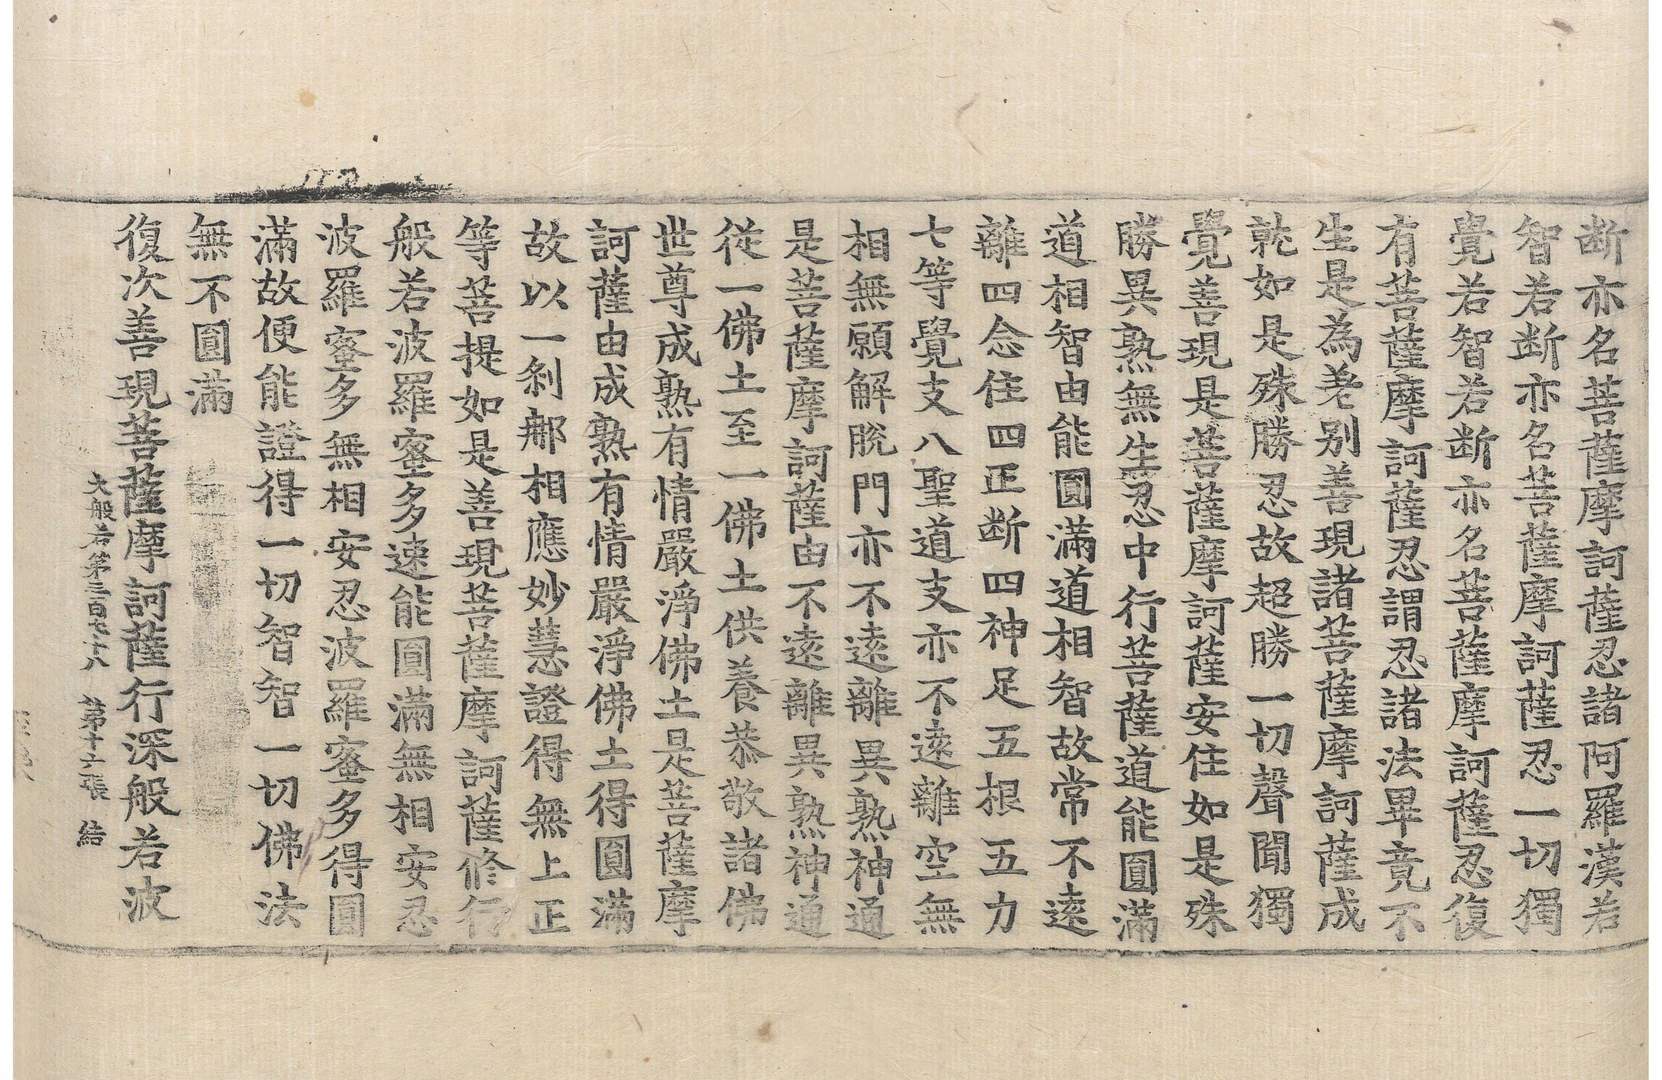 断亦名菩薩摩訶薩忍諸阿羅漢若
智若断亦名菩薩摩訶薩忍一切獨
覺若智若断亦名菩薩摩訶薩忍復
有菩薩摩訶薩忍謂忍諸法畢竟不
生是為差别善現諸菩薩摩訶薩成
就如是殊勝忍故超勝一切聲聞獨
覺善現是菩薩摩訶薩安住如是殊
勝異熟無生忍中行菩薩道能圓滿
道相智由能圓滿道相智故常不遠
離四念住四正断四神足五根五力
七等覺支八聖道支亦不遠離空無
相無願解脫門亦不遠離異熟神通
是菩薩摩訶薩由不遠離異熟神通
從一佛土至一佛土供養恭敬諸佛
世尊成熟有情嚴淨佛土是菩薩摩
訶薩由成熟有情嚴淨佛土得圓滿
故以一剎那相應妙慧證得無上正
等菩提如是善現菩薩摩訶薩修行
般若波羅蜜多速能圓滿無相安忍
波羅蜜多無相安忍波羅蜜多得圓
滿故便能證得一切智智一切佛法
無不圓滿
復次善現菩薩摩訶薩行深般若波
大般若第三百七十八 第十六張 結